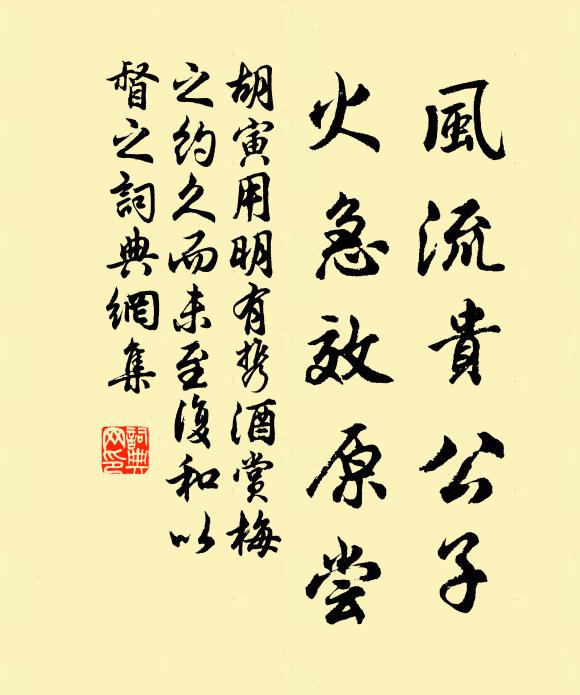 風流貴公子
火急效原尝
胡寅用明有携酒賞梅
之約久而未至復和以
督之詞典網集
詞典網印